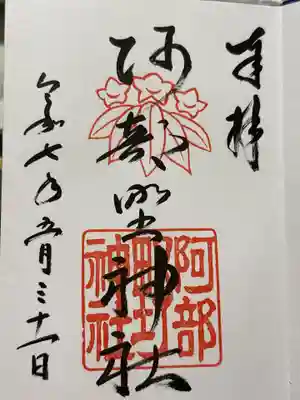 奉拝
阿部野神社
令和七年五月三十一日
阿部野神社